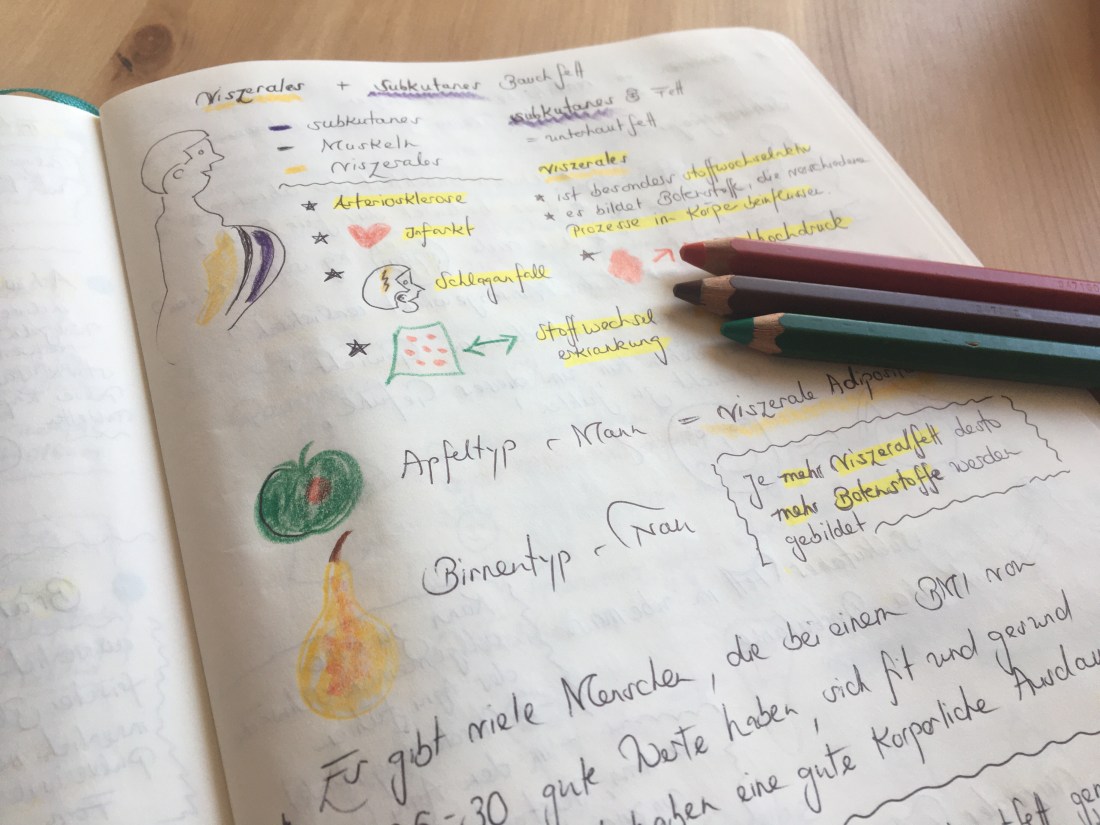 Viszerales + Subkutanes Bauchfett
subkutanes
Muskeln
Viszerales
Arteriosklerose
Infarkt
Schlaganfall
Stoffwechsel
erkrankung
subkutanes Fett
= unterhautfett
Viszerales
ist besonders stoffwechselaktiv
es bildet Botenstoffe, die verschiedene
Prozesse im Körper beinflussen.
hochdruck
Apfeltyp - Mann = Viszerale
Je mehr Viszeralfett desto
mehr Botenstoffe werden
gebildet
Birnentyp - Frau
Es gibt viele Menschen, die bei einem BMI von
-30 gute Werte haben, sich fit und gesund
haben eine gute Körperliche